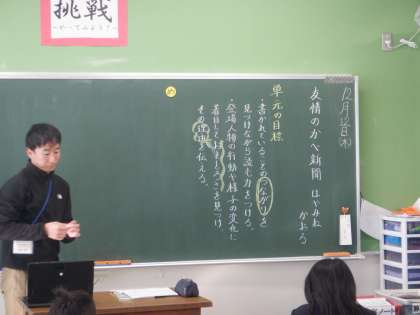 挑戦
〜やってみよう！〜
12月12日(木)
友情のかべ新聞 はやみね かおる
単元の目標
・書かれていることのつながりを
見つけながら読む力をつける。
・登場人物の行動や様子の変化に
着目して
見つけ、
その理由を伝える。
め